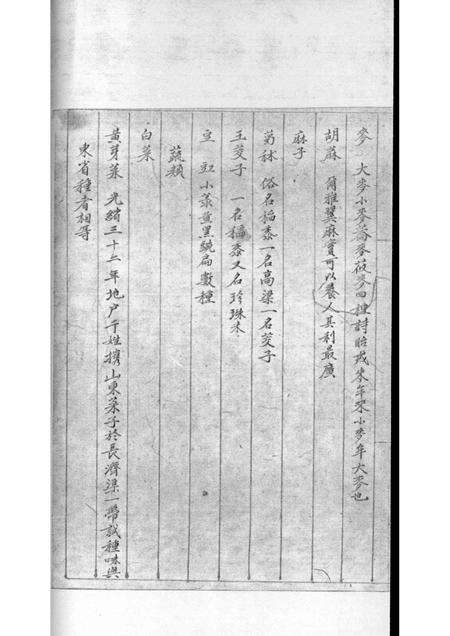 麥 大麥小麥蕎麥莜麥四種詩貽我來牟來小麥牟大麥也
胡麻 爾雅翼麻實可以養人其利最廣
麻子
蜀秫 俗名稻黍一名高梁一名茭子
玉茭子 一名稻黍又名珍珠米
豆 小黃黑綠扁數種
蔬類
白菜
黃芽菜 光緒三十二年地户于姓携山東菜子於長濟渠一帶試種味與
東省種者相等